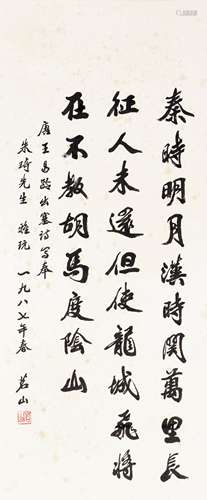 秦時明月漢時関萬里長
征人未還但使龍城飛将
在不教胡馬度陰山
唐王昌齡出塞詩写奉
朱琦先生 雅玩 一九八七年春
茗山